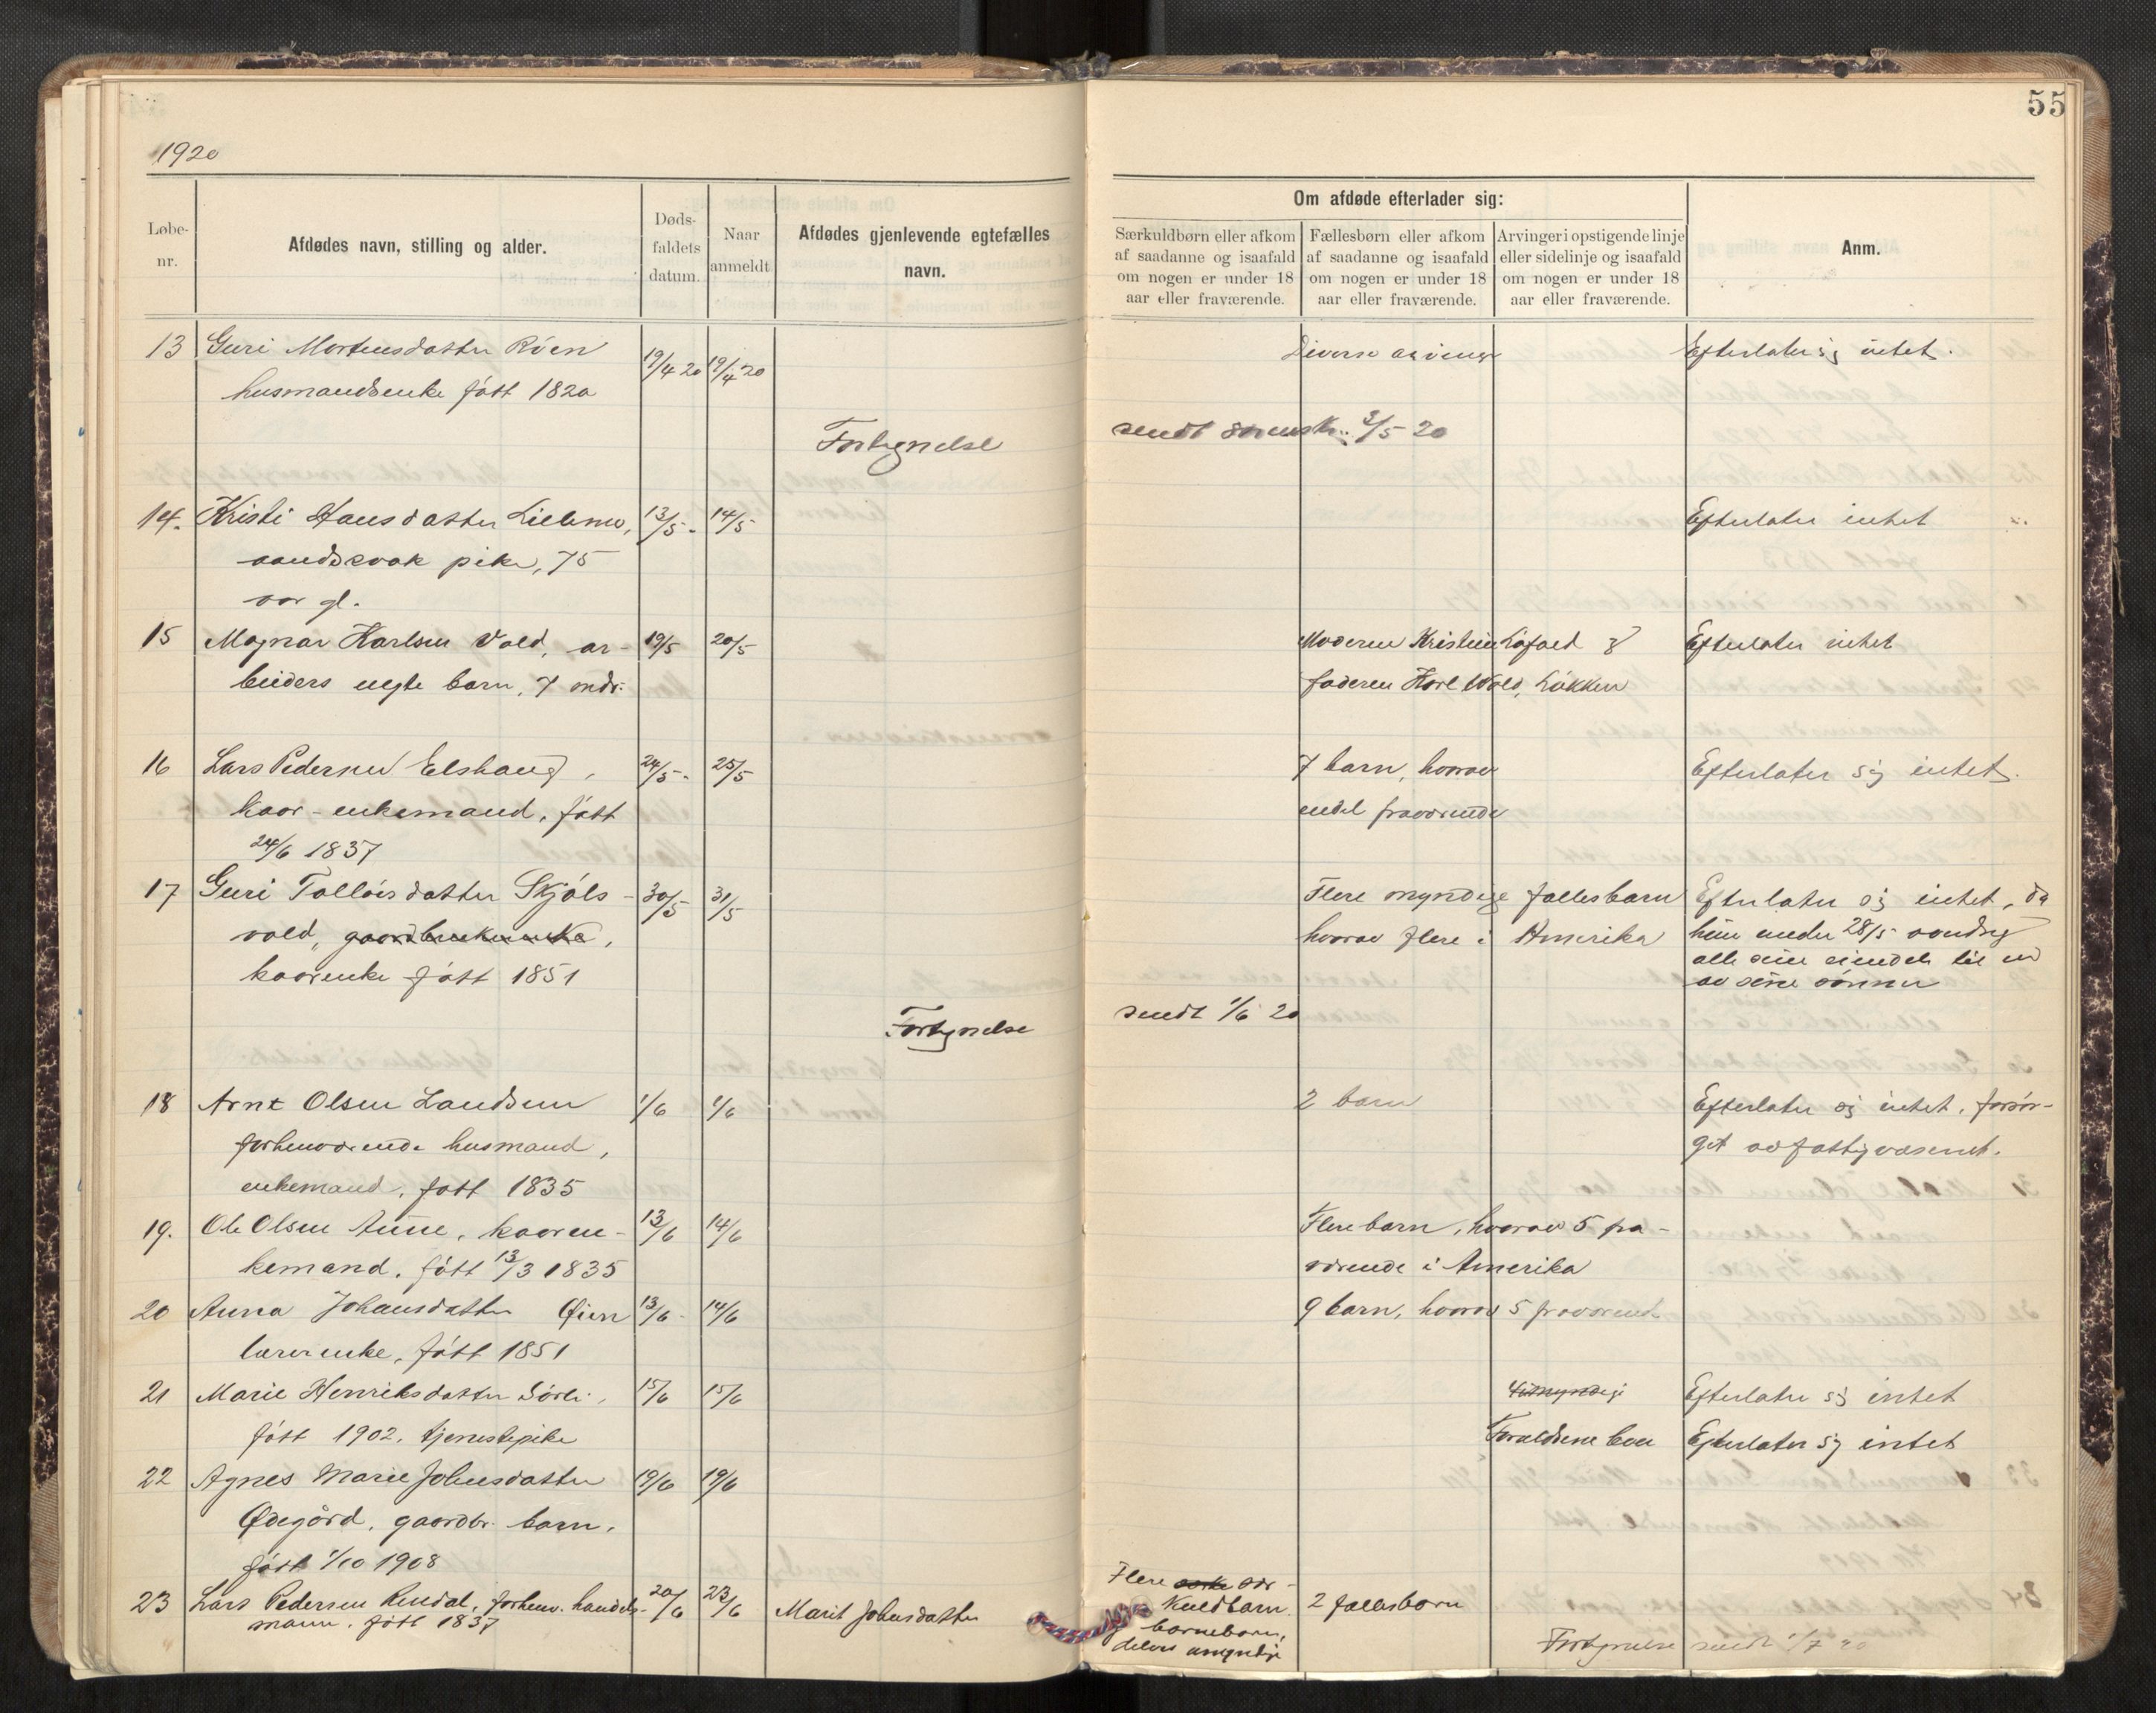 55
1920
Løbe-nr.
Afdødes navn, stilling og alder.
Døds-faldets datum.
Naar anmeldt
Afdødes gjenlevende egtefælles navn.
Om afdøde efterlader sig:
Særkuldbørn eller afkom af saadanne og isaafald om nogen er under 18 aar eller fraværende.
Fællesbørn eller afkom af saadanne og isaafald om nogen er under 18 aar eller fraværende.
Arvinger i opstigende linje eller sidelinje og isaafald om nogen er under 18 aar eller fraværende.
Anm.
13 Guri Mortensdatter Röen 19/4 20 19/4 20 Diverse arvinge Efterlater sig intet.
husmandsenke fött 1820
Fortegnelse sendt sorensk. 3/5 20
14. Kristi Hansdatter Lielsmo, 13/5 - 14/5 Efterlater intet
aandssvak pike, 75
aar gl.
15 Magnar Karlsen Vold, ar- 19/5 20/5 Moderen Kristine Löfald & Efterlater intet
beiders uegte barn, 7 mdr. faderen Karl Wold, Lökken
16 Lars Pedersen Elshaug, 24/5 - 25/5 7 barn, hvorav Efterlater sig intet.
kaar-enkemand, fött endel fraværende
24/6 1837
17 Guri Tollöisdatter Skjöls- 30/5 31/5 Flere myndige fællesbarn Efterlater sig intet, da
vold, gaardbrukerenke, hvorav flere i Amerika hun under 28/5 avendrog
kaarenke fött 1851 alle sine eiendele til en
av sine sönner
Fortegnelse sendt 1/6 20
18 Arnt Olsen Landsem 1/6 1/6 2 barn Efterlater sig intet, forsör-
forhenværende husmand, get av fattigvæsenet.
enkemand, fött 1835
19. Ole Olsen Aune, kaaren- 13/6 14/6 Flere barn, hvorav 5 fra-
kemand, fött 13/3 1835 værende i Amerika
20 Anna Johansdatter Øien 13/6 - 14/6 9 barn, hvorav 5 fraværende
lærerenke, fött 1851
21 Marie Henriksdatter Sörli, 15/6 15/6 Efterlater sig intet
fött 1902, tjenestepike Foreldrene Efterlater sig intet
22 Agnes Marie Johnsdatter 19/6 19/6
Ødegård, gaardbr. barn,
fött 1/10 1908
23 Lars Pedersen Rendal, forhenv. handels- 20/6 23/6 Marit Johnsdatter Flere sær-kuldbarn, barnebarn, delvis umyndige 2 fællesbarn
mann, fött 1837
Fortegnelse sendt 1/7 20